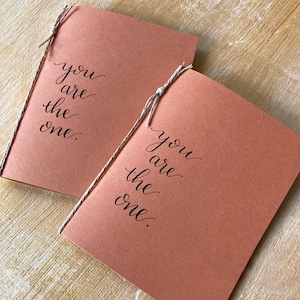 you
are
the
one.
you
are
the
one.